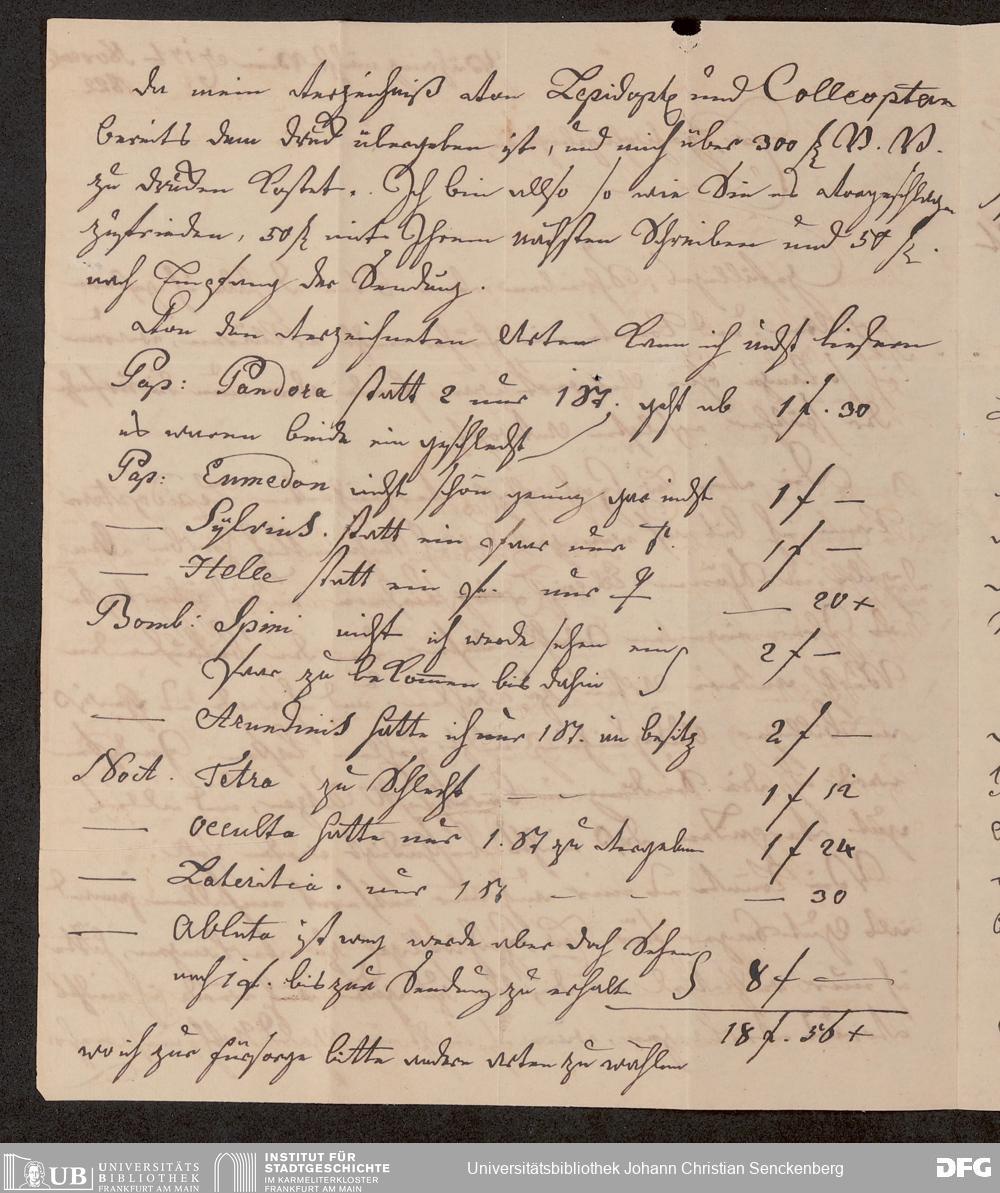 Da mein Verzeichniß von Lepidopt und Colleoptern
bereits dem Druck übergeben ist, und mich über 300 f W. W.
zu drucken kostet. Ich bin allso so wie Sie es vorgeschlagen
zufrieden, 50 f mit Ihrem nächsten Schreiben und 50 f.
nach Empfang der Sendung.
Von den verzeichneten Arten kann ich nicht liefern
Pap: Pandora statt 2 nur 1 St. geht ab 1 f. 30
es waren beide ein geschlecht
Pap: Eumedon nicht schön genug gar nicht 1 f —
— Sylvius. statt ein Paar nur ♂. 1 f —
— Helle statt ein P. nur ♀ — 20 x
Bomb: Spini nicht ich werde sehen ein 2 f —
Paar zu bekommen bis dahin
— Arundinis hatte ich nur 1 St. im besitz 2 f —
Noct. Tetra zu Schlecht — — 1 f 12
— occulta hatte nur 1. St zu vergeben 1 f 24
— Lateritia. nur 1 St — - — 30
— Abluta ist weg werde aber doch Sehen
noch 1 P. bis zur Sendung zu erhalten 8 f —
18 f. 56 x
wo ich zur fürsorge bitte andere arten zu wählen
UB UNIVERSITÄTS
BIBLIOTHEK
FRANKFURT AM MAIN
INSTITUT FÜR
STADTGESCHICHTE
IM KARMELITERKLOSTER
FRANKFURT AM MAIN
Universitätsbibliothek Johann Christian Senckenberg
DFG